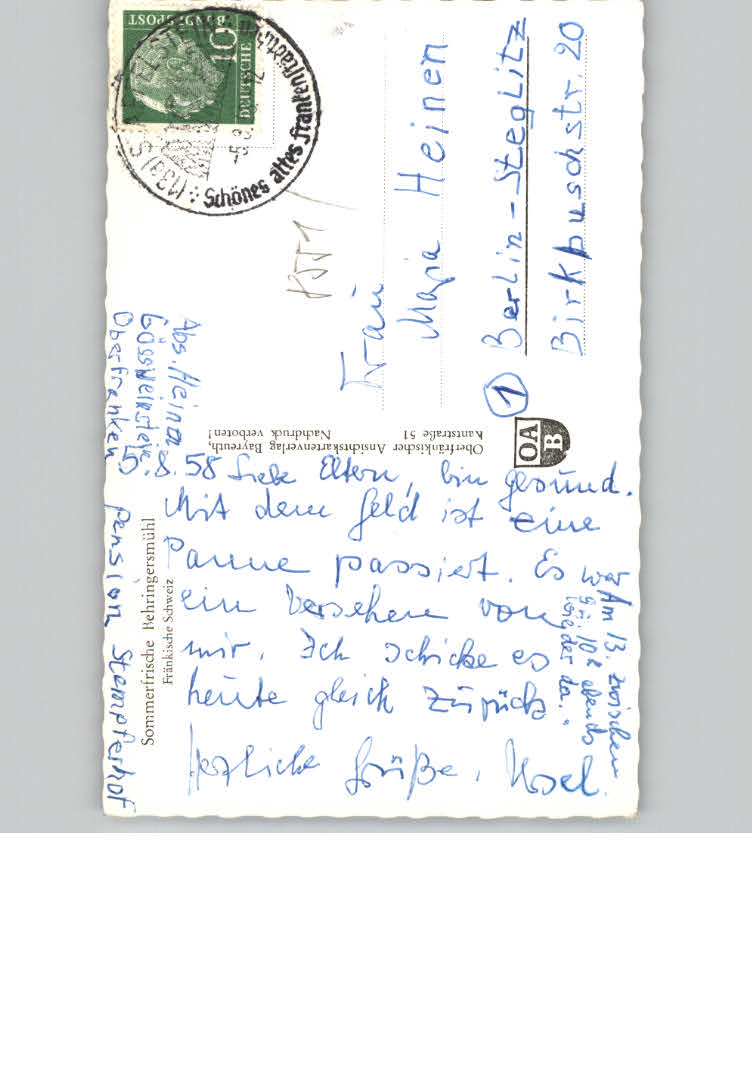 DEUTSCHE
BUNDESPOST
10
Schönes altes Frankenstädtchen
(13a)
1551
Frau
Maria Heinen
1 Berlin-Steglitz
Birkbuschstr. 20
Abs. Heinen
Gössweinstein
Oberfranken
Pension Stempferhof
Oberfränkischer Ansichtskartenverlag Bayreuth,
Kantstraße 51
Nachdruck verboten!
OA
B
Sommerfrische Behringersmühl
Fränkische Schweiz
5.8.58 Liebe Eltern, bin gesund.
Mit dem Geld ist eine
Panne passiert. Es war
ein Versehen von
mir. Ich schicke es
heute gleich zurück
Herzliche Grüße,
Am 13. zwischen
9 u. 10h abends
wieder da.